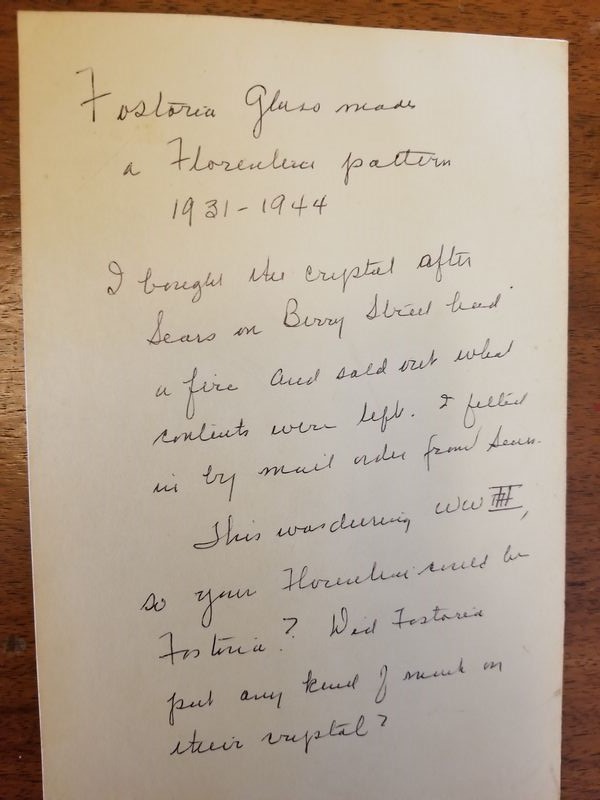 Fostoria Glass made
a Florentine pattern
1931-1944
I bought the crystal after
Sears on Berry Street had
a fire and sold out what
contents were left. I filled
in by mail order from Sears.
This was during WW II,
so your Florentine could be
Fostoria? Did Fostoria
put any kind of mark on
their crystal?